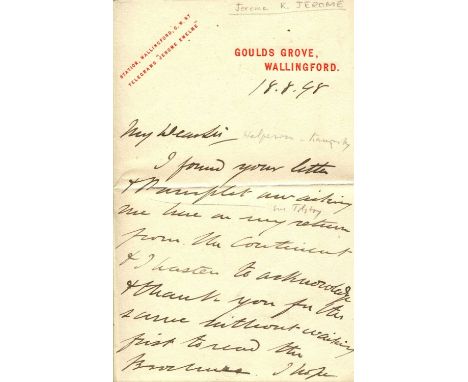 Jerome K. JEROME
STATION, WALLINGFORD, G.W.RY
TELEGRAMS "JEROME EWELME"
GOULDS GROVE,
WALLINGFORD.
18.8.98
My Dear Sir
I found your letter
& Pamphlet awaiting
sur Tolstoy
me here on my return
from the Continent
& I hasten to acknowledge
& thank you for the
same without waiting
first to read the
Brochure. I hope